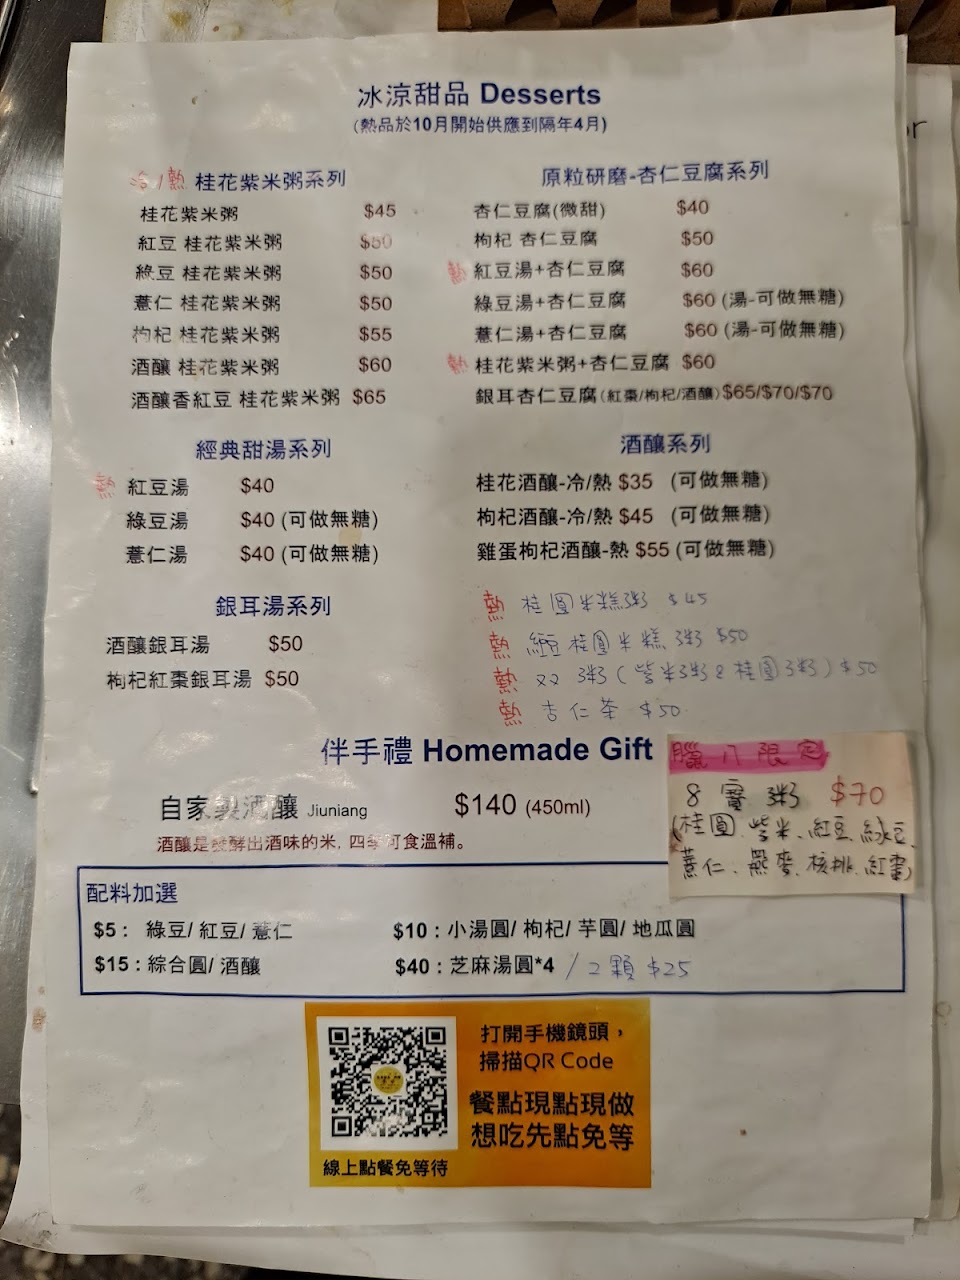 冰涼甜品 Desserts
(熱品於10月開始供應到隔年4月)
冷/熱 桂花紫米粥系列
桂花紫米粥 $45
紅豆 桂花紫米粥 $50
綠豆 桂花紫米粥 $50
薏仁 桂花紫米粥 $50
枸杞 桂花紫米粥 $55
酒釀 桂花紫米粥 $60
酒釀香紅豆 桂花紫米粥 $65
原粒研磨-杏仁豆腐系列
杏仁豆腐(微甜) $40
枸杞 杏仁豆腐 $50
熱 紅豆湯+杏仁豆腐 $60
綠豆湯+杏仁豆腐 $60 (湯-可做無糖)
薏仁湯+杏仁豆腐 $60 (湯-可做無糖)
熱 桂花紫米粥+杏仁豆腐 $60
銀耳杏仁豆腐(紅棗/枸杞/酒釀) $65/$70/$70
經典甜湯系列
熱 紅豆湯 $40
綠豆湯 $40 (可做無糖)
薏仁湯 $40 (可做無糖)
酒釀系列
桂花酒釀-冷/熱 $35 (可做無糖)
枸杞酒釀-冷/熱 $45 (可做無糖)
雞蛋枸杞酒釀-熱 $55 (可做無糖)
銀耳湯系列
酒釀銀耳湯 $50
枸杞紅棗銀耳湯 $50
熱 桂圓米糕粥 $45
熱 紅豆桂圓米糕粥 $50
熱 双粥(紫米粥&桂圓粥) $50
熱 杏仁茶 $50
伴手禮 Homemade Gift
自家製酒釀 Jiuniang $140 (450ml)
酒釀是發酵出酒味的米, 四季可食溫補。
臘八限定
8寶粥 $70
(桂圓、紫米、紅豆、綠豆、
薏仁、燕麥、核桃、紅棗)
配料加選
$5: 綠豆/ 紅豆/ 薏仁
$10 : 小湯圓/ 枸杞/ 芋圓/ 地瓜圓
$15 : 綜合圓/ 酒釀
$40 : 芝麻湯圓*4 /2顆 $25
打開手機鏡頭，
掃描QR Code
餐點現點現做
想吃先點免等
線上點餐免等待